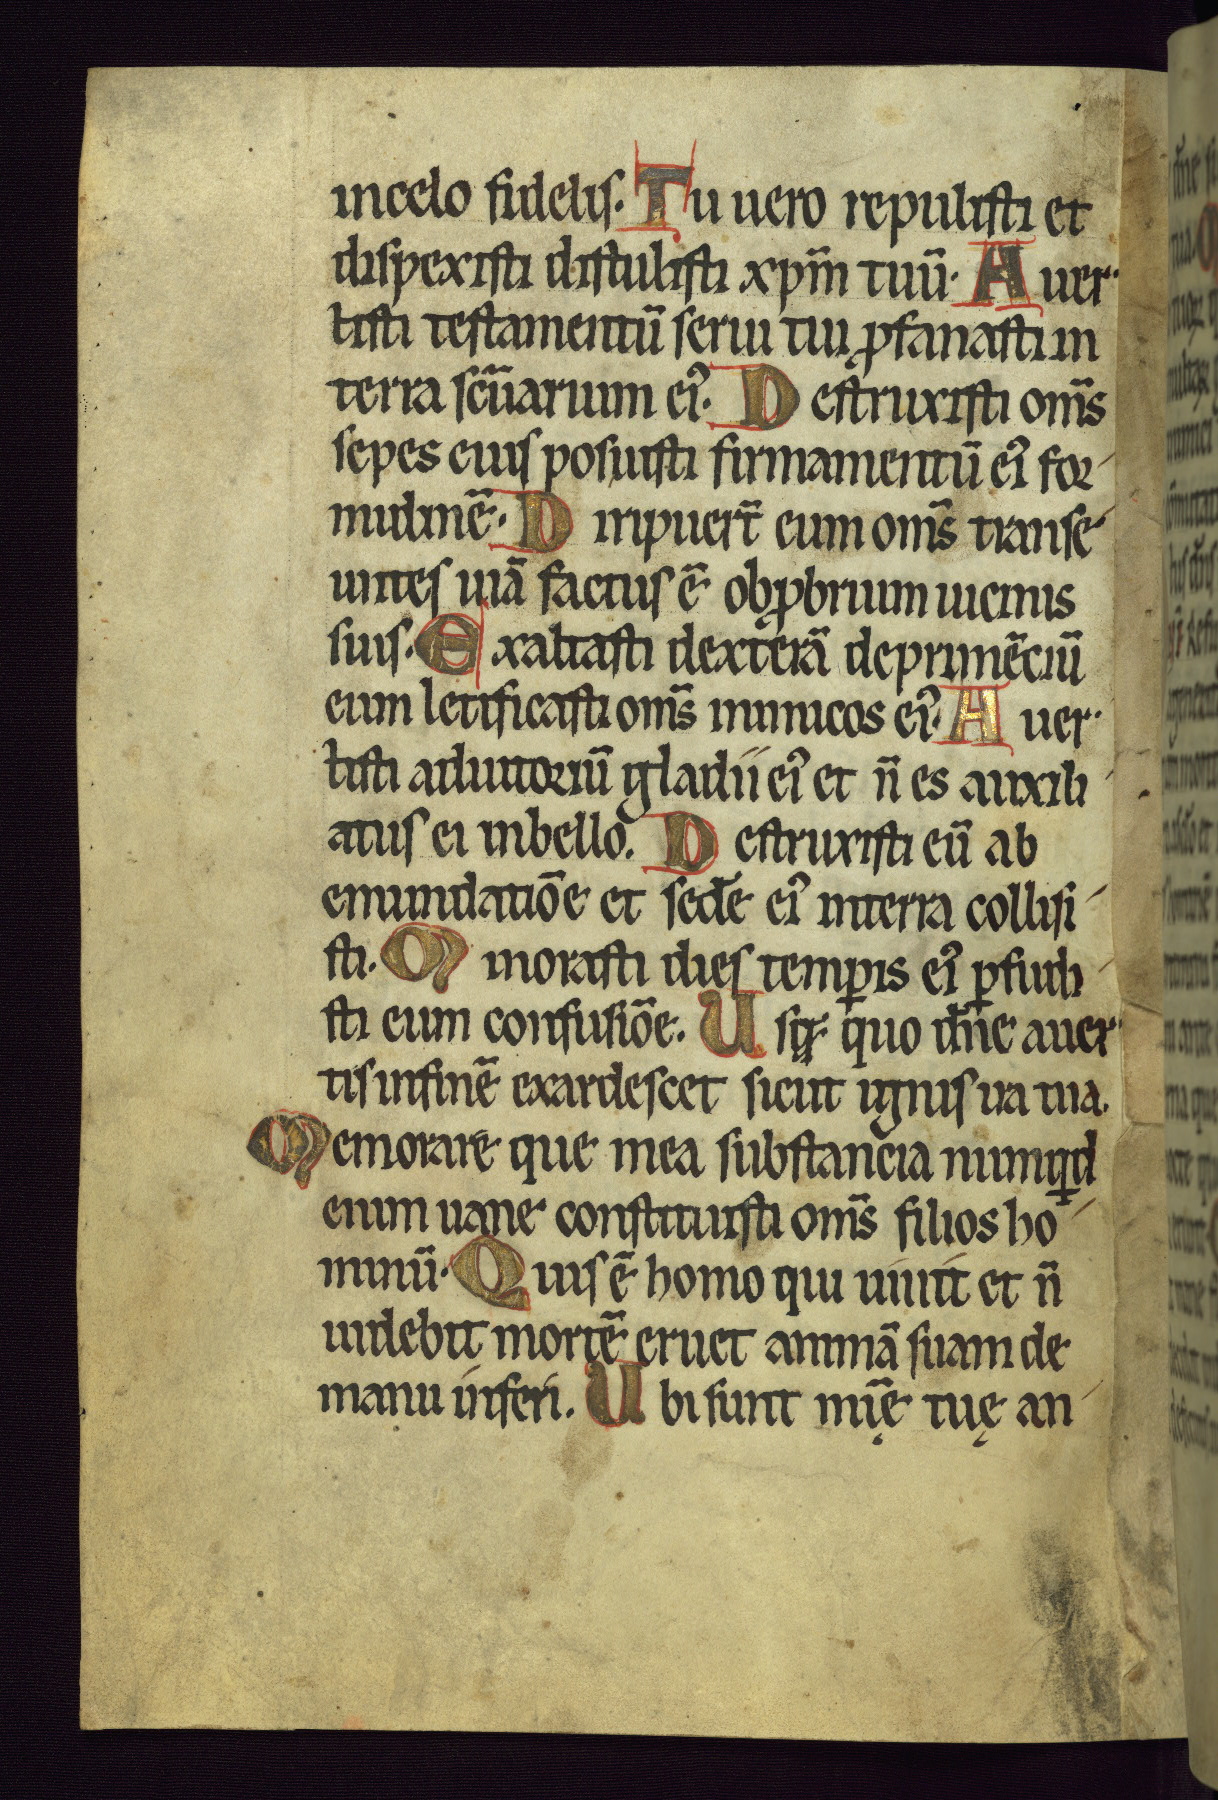 in celo fidelis. Tu uero repulisti et
dispexisti distulisti xpm̄ tuū. Auer
tisti testamentū serui tui ꝓfanasti in
terra scūarium eiꝰ. Destruxisti om̄s
sepes euis posuisti firmamentū eiꝰ for
midinē. Diripuer̄t eum om̄s transe
untes uiā factus ē obꝓbrium uicinis
suis. Exaltasti dexterā deprimēciū
eum letificasti om̄s inimicos eiꝰ. Auer
tisti adiutoriū gladii eiꝰ et n̄ es auxili
atus ei in bello. Destruxisti eū ab
emundatiōe et sedē eiꝰ in terra collisi
sti. Minorasti dies temꝑis eiꝰ ꝑfudi
sti eum confusiōe. Usqꝫ quo dn̄e auer
tis in finē exardescet sicut ignis ira tua.
Memorare que mea substancia numqd
enim uane constituisti om̄s filios ho
minū. Quis ē homo qui uiuit et n̄
uidebit mortē eruet animā suam de
manu inferi. Ubi sunt mīe̜ tue̜ an